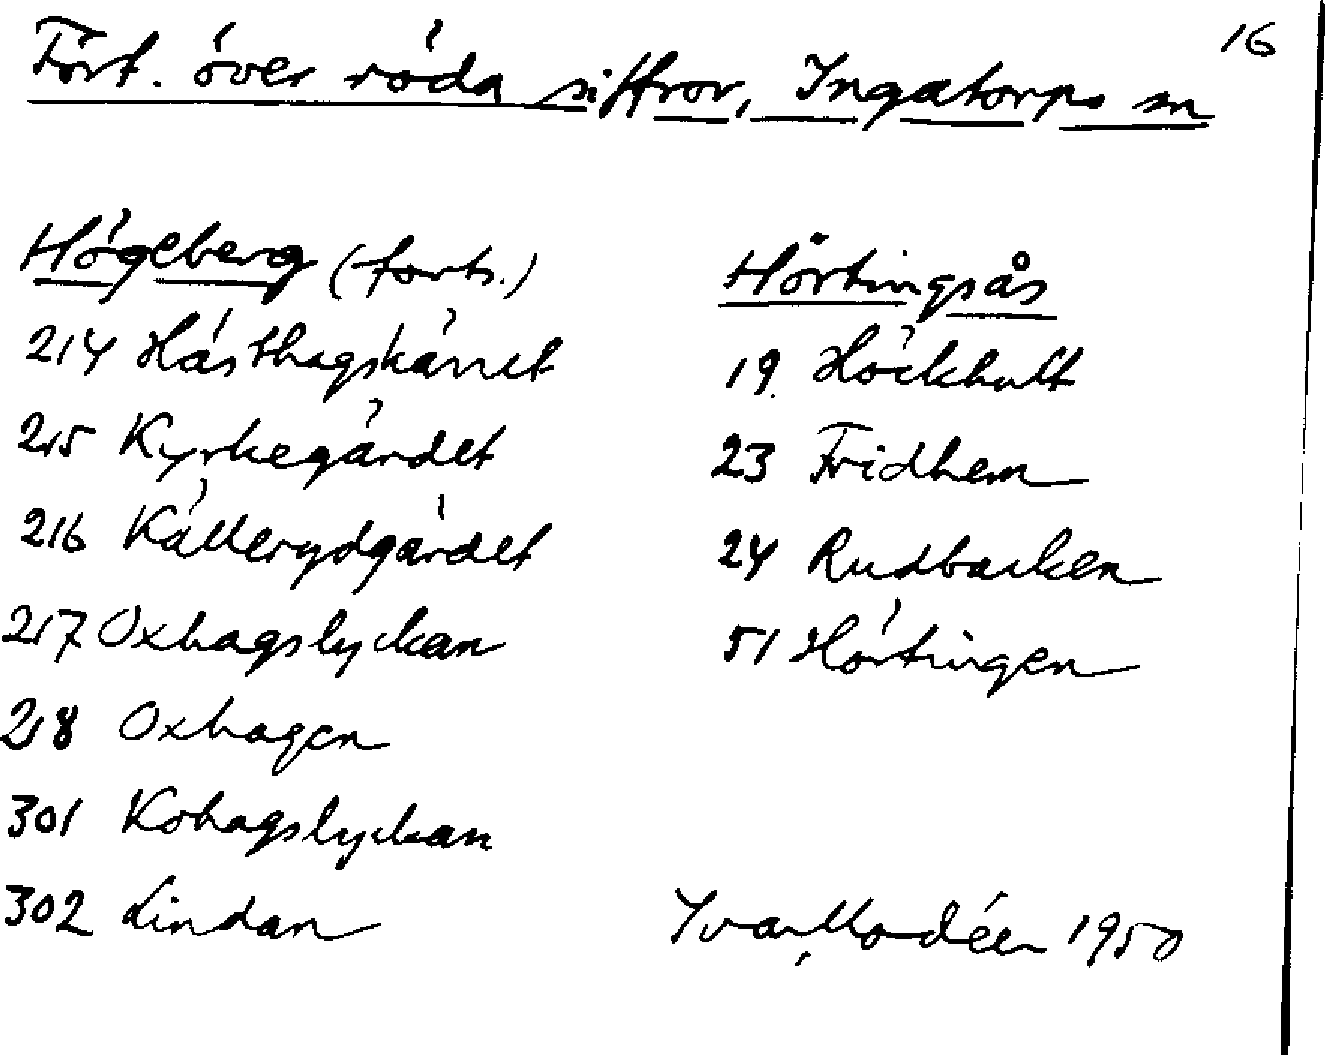 16
Fört. över röda siffror, Ingatorps sn
Högeberg (forts.)
214 Hästhagskärret
215 Kyrkegärdet
216 Källerydgärdet
217 Oxhagslyckan
218 Oxhagen
301 Kohagslyckan
302 Lindan
Hörtingsås
19 Höckhult
23 Fridhem
24 Rudbacken
51 Hörtingen
Ivar Modéer 1950